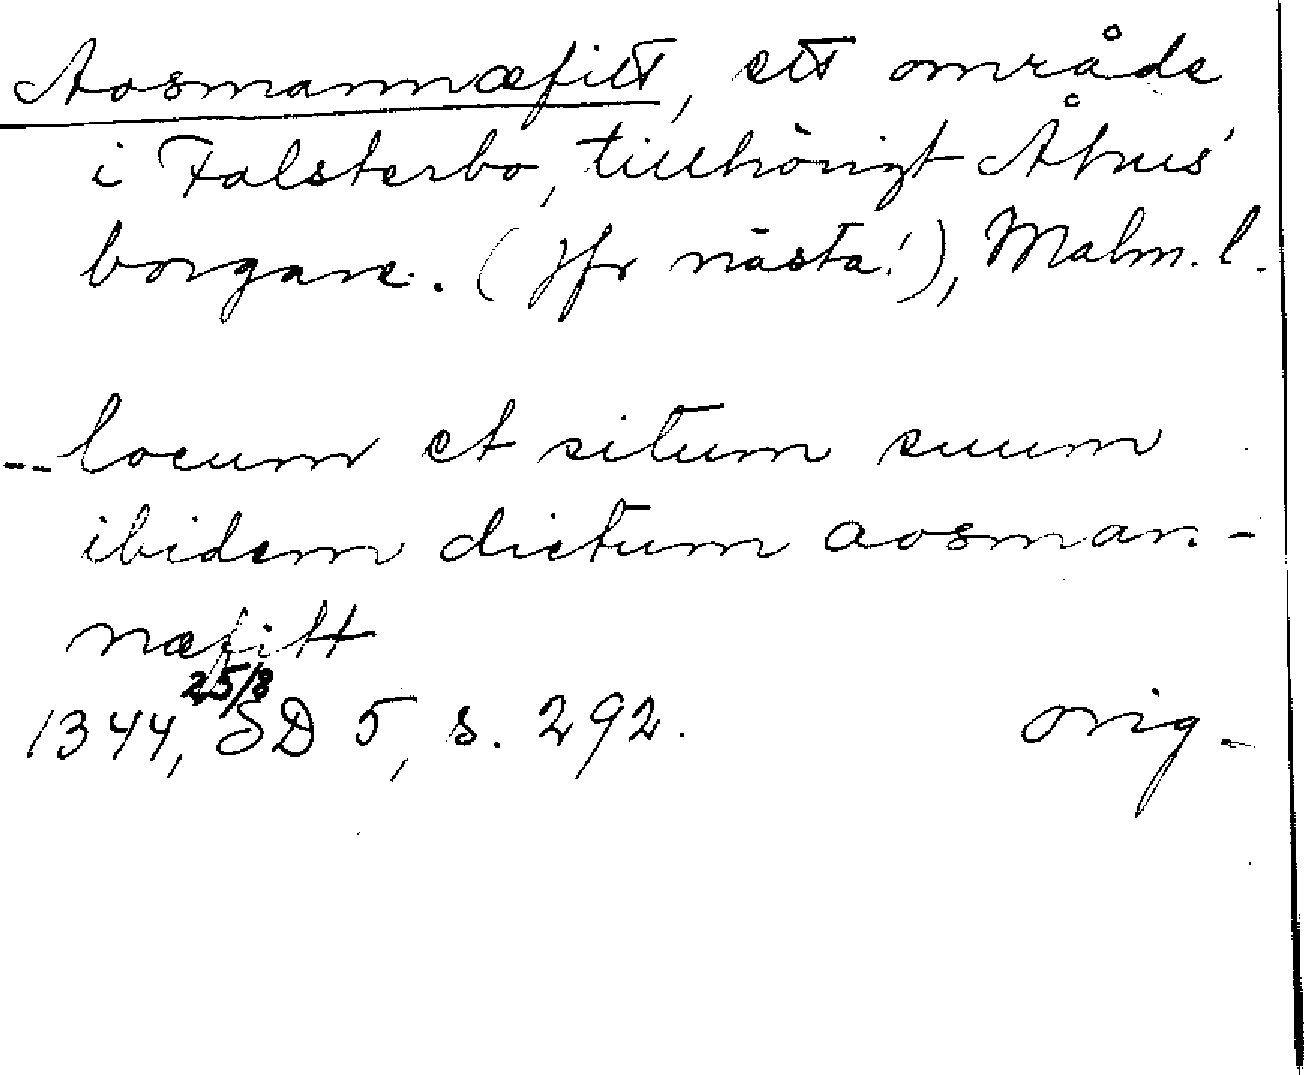 Aosmannæfitt, ett område
i Falsterbo, tillhörigt Åhus'
borgare. (Jfr nästa!), Malm. l.
-- locum et situm suum
ibidem dictum aosman-
næfitt
25/8
1344, SD 5, s. 292. orig.